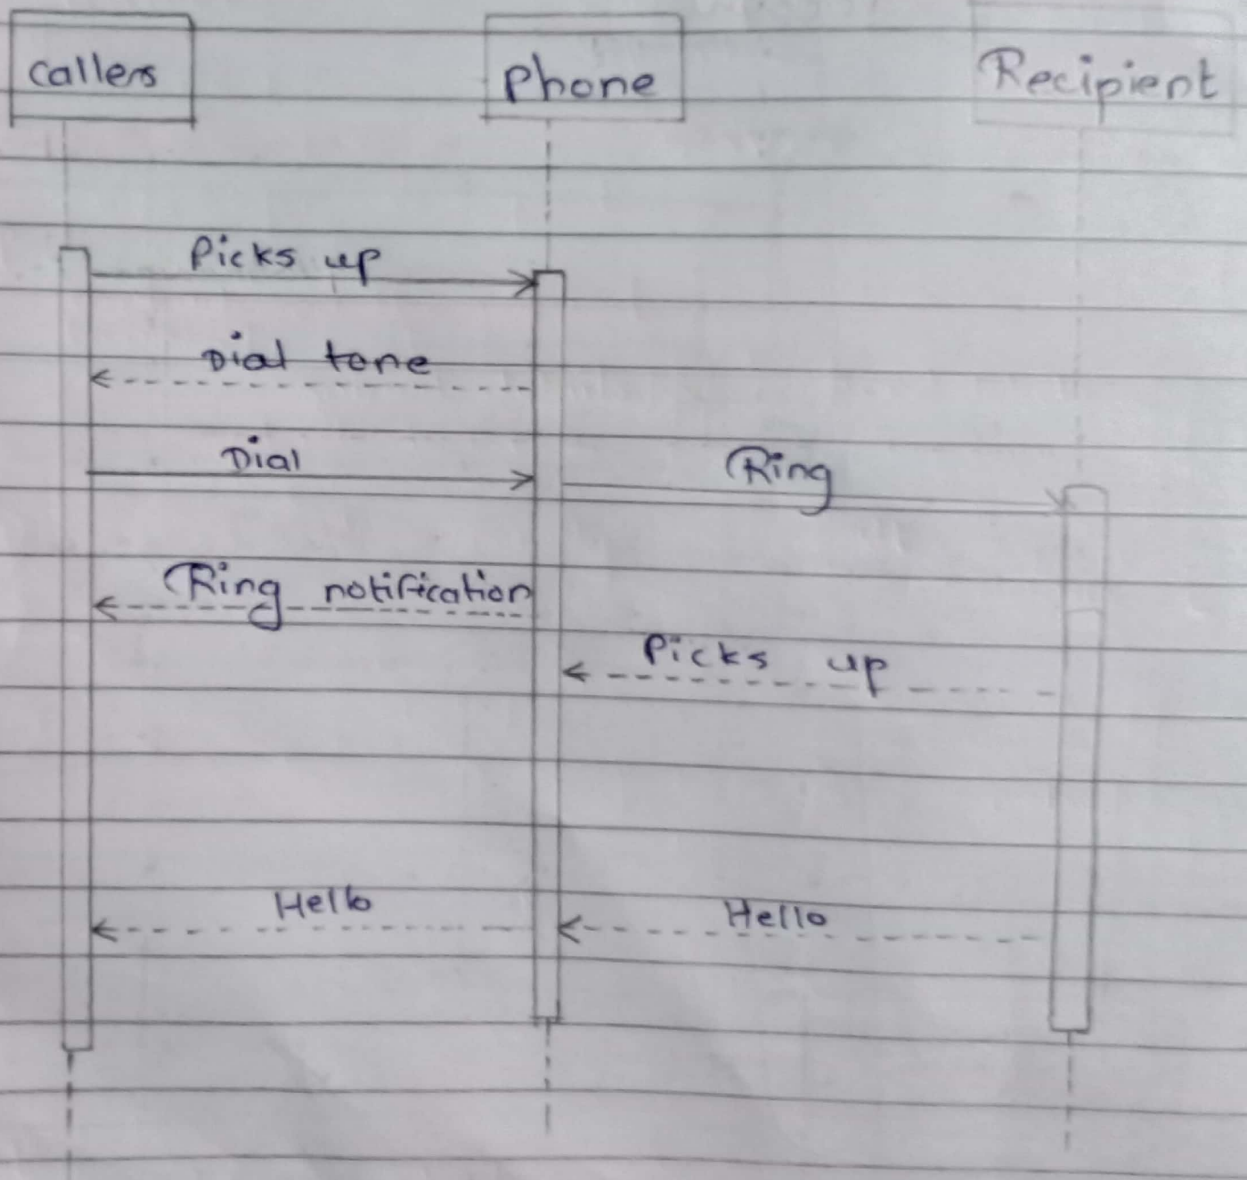 callers Phone Recipient
Picks up
Dial tone
Dial
Ring
Ring notification
Picks up
Hello Hello